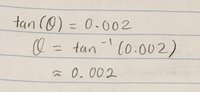 tan(θ) = 0.002
θ = tan⁻¹(0.002)
≈ 0.002